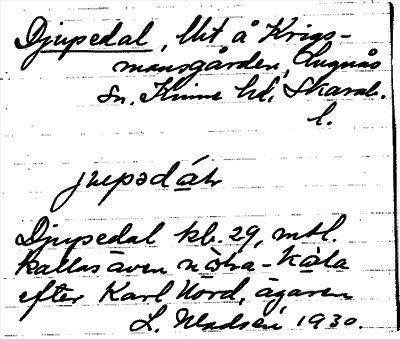 Djupedal, lht å Krigs-
mansgården, Lugnås
sn, Kinne hd, Skarab.
l.
jupədàtr
Djupedal kb. 29, mtl.
kallas även nòra-kàla
efter Karl Nord, ägaren
L. Madsén 1930.